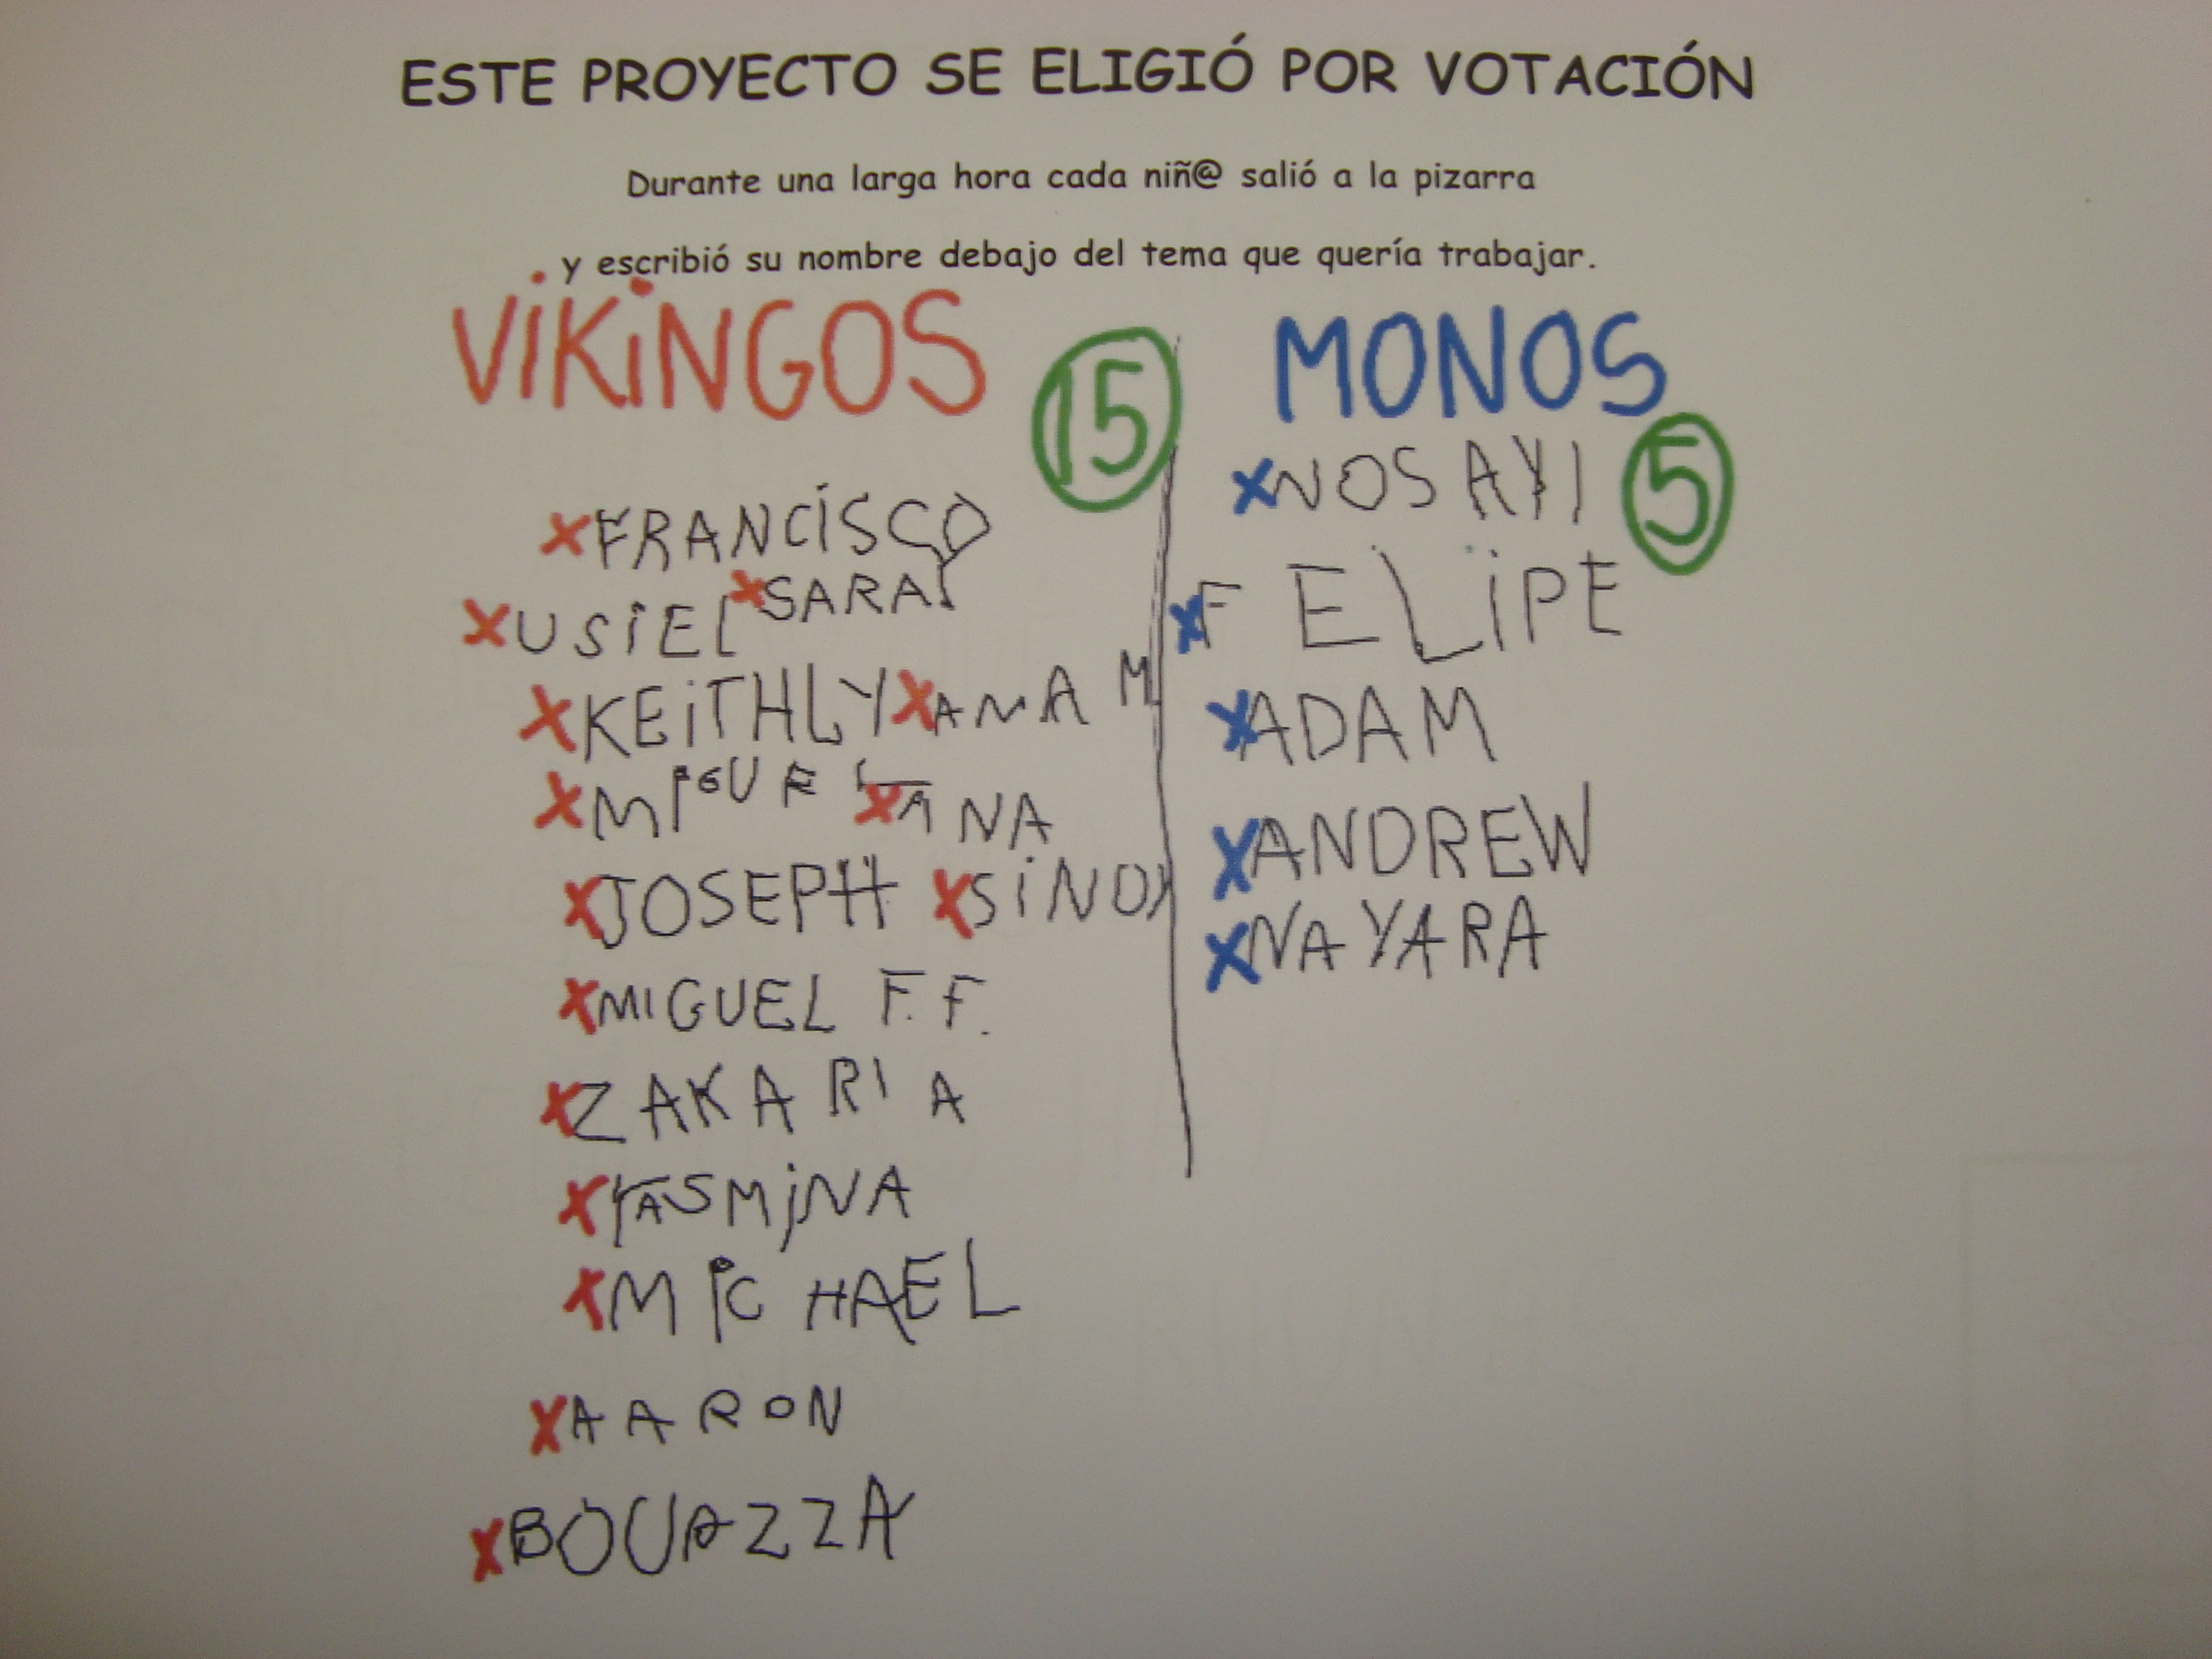 ESTE PROYECTO SE ELIGIÓ POR VOTACIÓN
Durante una larga hora cada niñ@ salió a la pizarra
y escribió su nombre debajo del tema que quería trabajar.
ViKiNGOS 15
xFRANCiSCO
xUSiEL xSARAY
xKEiTHLY xANA M
xMiGUEL xANA
xJOSEPH xSiNDY
xMIGUEL F.F.
xZAKARIA
xYASMiNA
xMiCHAEL
xAARON
xBOUAZZA
MONOS 5
xNOSAYI
xFELiPE
xADAM
xANDREW
xNAYARA